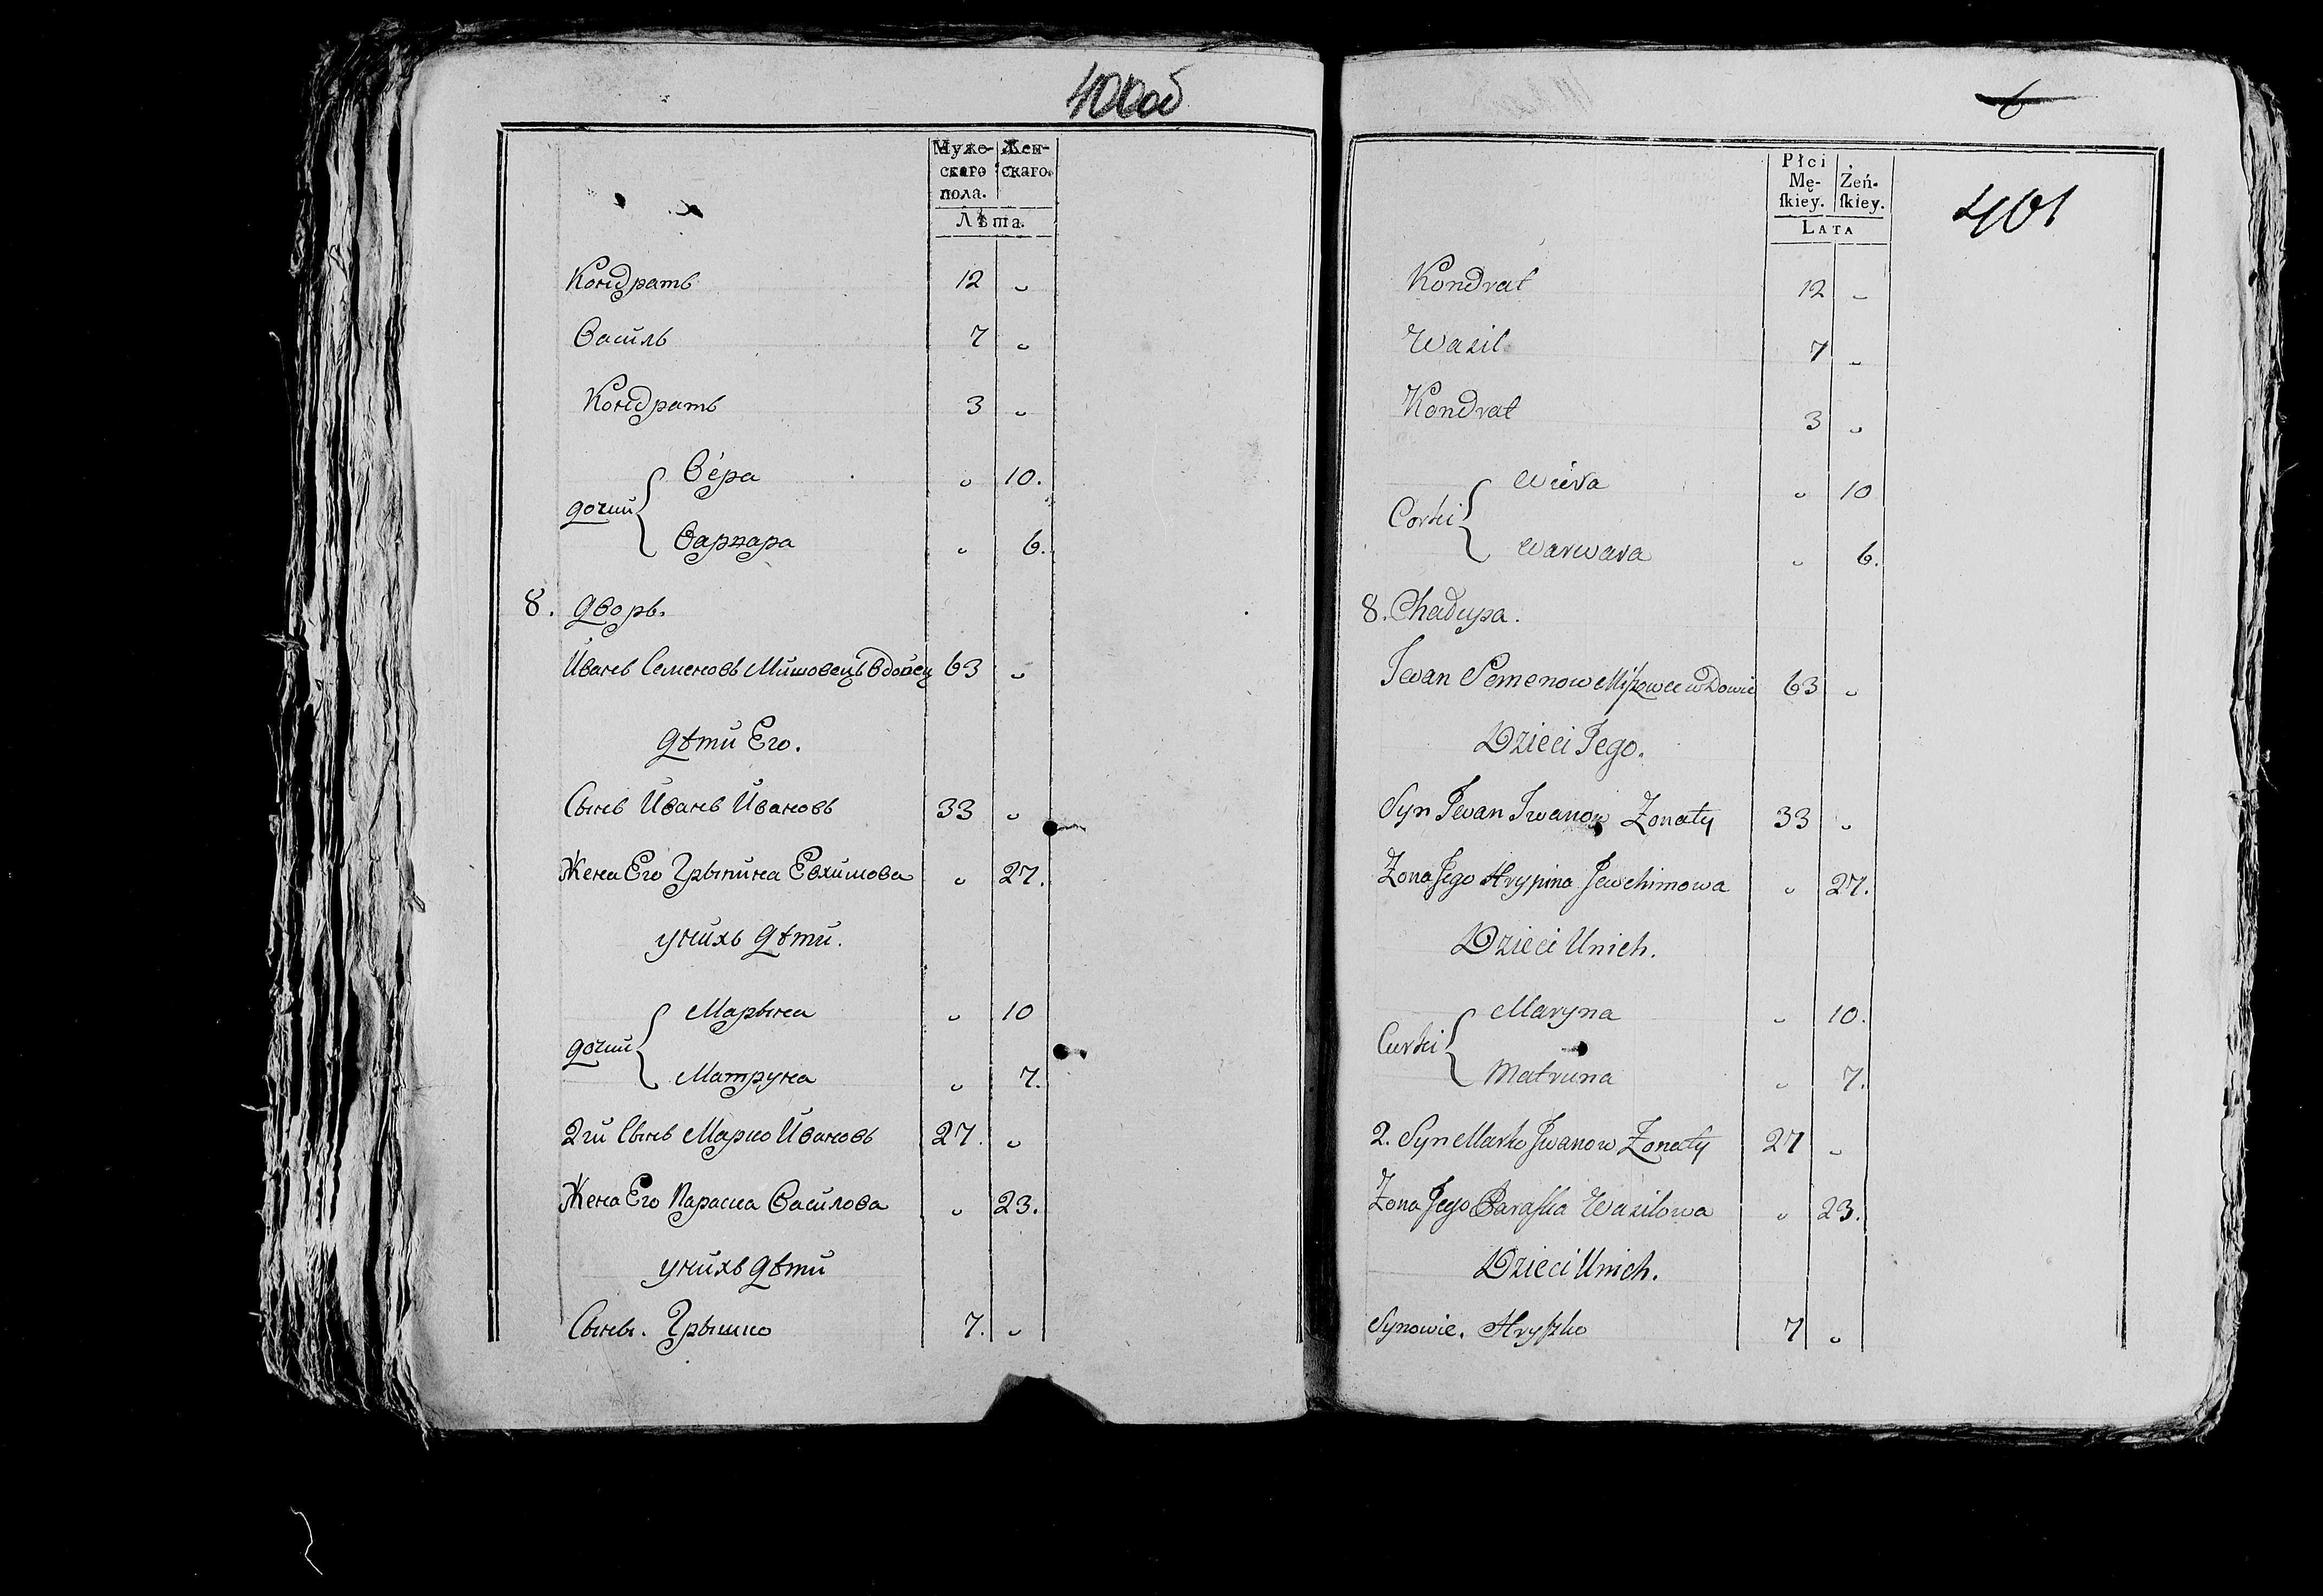 400об
Муже-
скаго
пола.
Жен-
скаго.
Лѣта.
Кондратъ 12 „
Василь 7 „
Кондратъ 3 „
Вѣра „ 10.
дочки
Варвара „ 6.
8. дворъ.
Иванъ Семеновъ Мишовецъ вдовец 63 „
дѣти Его.
Сынъ Иванъ Ивановъ 33 „
Жена Его Грыпина Евхимова „ 27.
у нихъ дѣти.
Марына „ 10
дочки
Матруна „ 7.
2й Сынъ Марко Ивановъ 27. „
Жена Его Параска Василова „ 23.
у нихъ дѣти
Сыны. Грышко 7. „
6
401
Płci
Mę-
ſkiey.
Żeń-
ſkiey.
LATA
Kondrat 12 „
Wazil 7 „
Kondrat 3 „
Wiera „ 10
Corki
Warwara „ 6.
8. Chałupa.
Iwan Semenow Miszowec wdowie 63 „
Dzieci Jego.
Syn Iwan Iwanow Zonaty 33 „
Zona Jego Hrypina Jewchimowa „ 27.
Dzieci Unich.
Maryna „ 10.
Curki
Matruna „ 7.
2. Syn Marko Iwanow Zonaty 27 „
Zona Jego Paraſka Wazilowa „ 23.
Dzieci Unich.
Synowie. Hryſzko 7 „